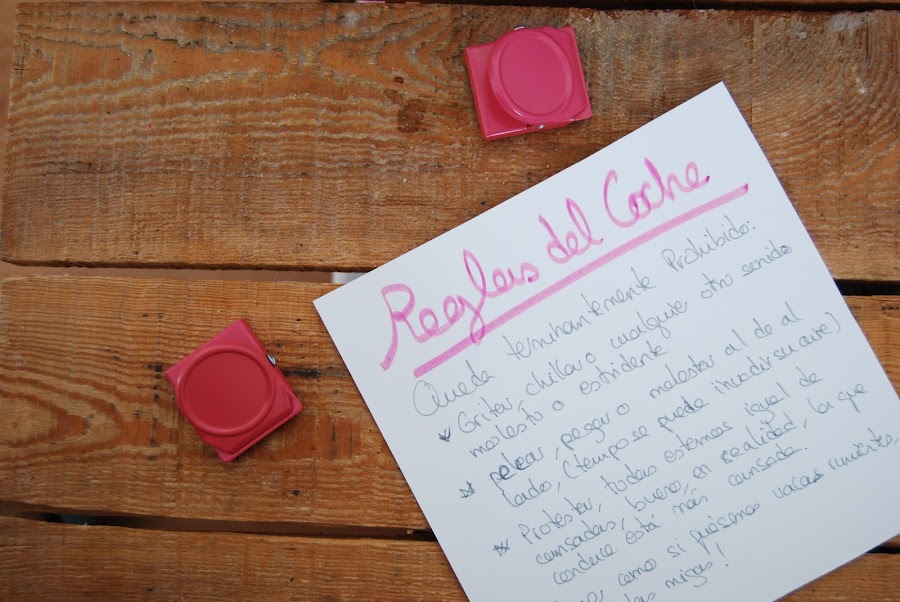 Reglas del Coche
Queda terminantemente Prohibido:
* Gritar, chillar o cualquier otro sonido
molesto o estridente
* pelear, pegar o molestar al de al
lado, (tampoco se puede invadir su aire)
* Protestar, todas estamos igual de
cansadas, bueno, en realidad, la que
conduce está más cansada.
como si fuésemos vacas
migas!